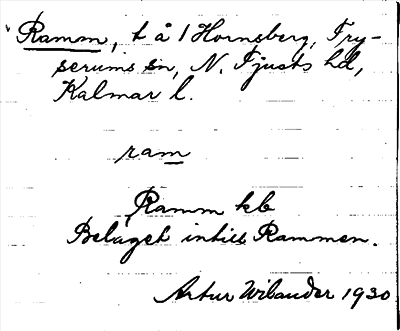 Ramm, t å 1 Hornsberg, Fry-
serums sn, N. Tjusts hd,
Kalmar l.
ram
Ramm kb
Beläget intill Rammen.
Artur Wilander 1930